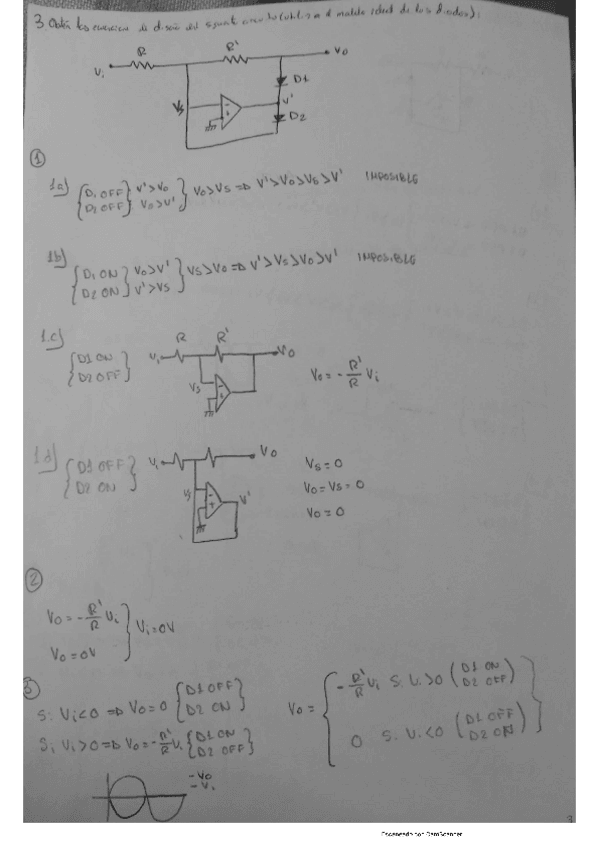 3. Obtén las ecuaciones de diseño del siguiente circuito (utiliza el modelo ideal de los diodos):
R R' Vo
Vi
D1
Vs V'
D2
①
1a) {D1 OFF} V'>Vo } Vo>Vs => V'>Vo>Vs>V' IMPOSIBLE
{D2 OFF} Vo>V'
1b) {D1 ON} Vo>V' } Vs>Vo => V'>Vs>Vo>V' IMPOSIBLE
{D2 ON} V'>Vs
1.c) R R'
{D1 ON Vi Vo
D2 OFF} Vs Vo = - R'/R Vi
1d) {D1 OFF Vi Vo Vs = 0
D2 ON} Vs V' Vo = Vs = 0
Vo = 0
②
Vo = - R'/R Vi } Vi = 0V
Vo = 0V
③
Si Vi<0 => Vo = 0 {D1 OFF D2 ON}
Si Vi>0 => Vo = - R'/R Vi {D1 ON D2 OFF}
Vo = { - R'/R Vi Si Vi>0 (D1 ON D2 OFF)
0 Si Vi<0 (D1 OFF D2 ON) }
- Vo
- Vi
3
Escaneado con CamScanner